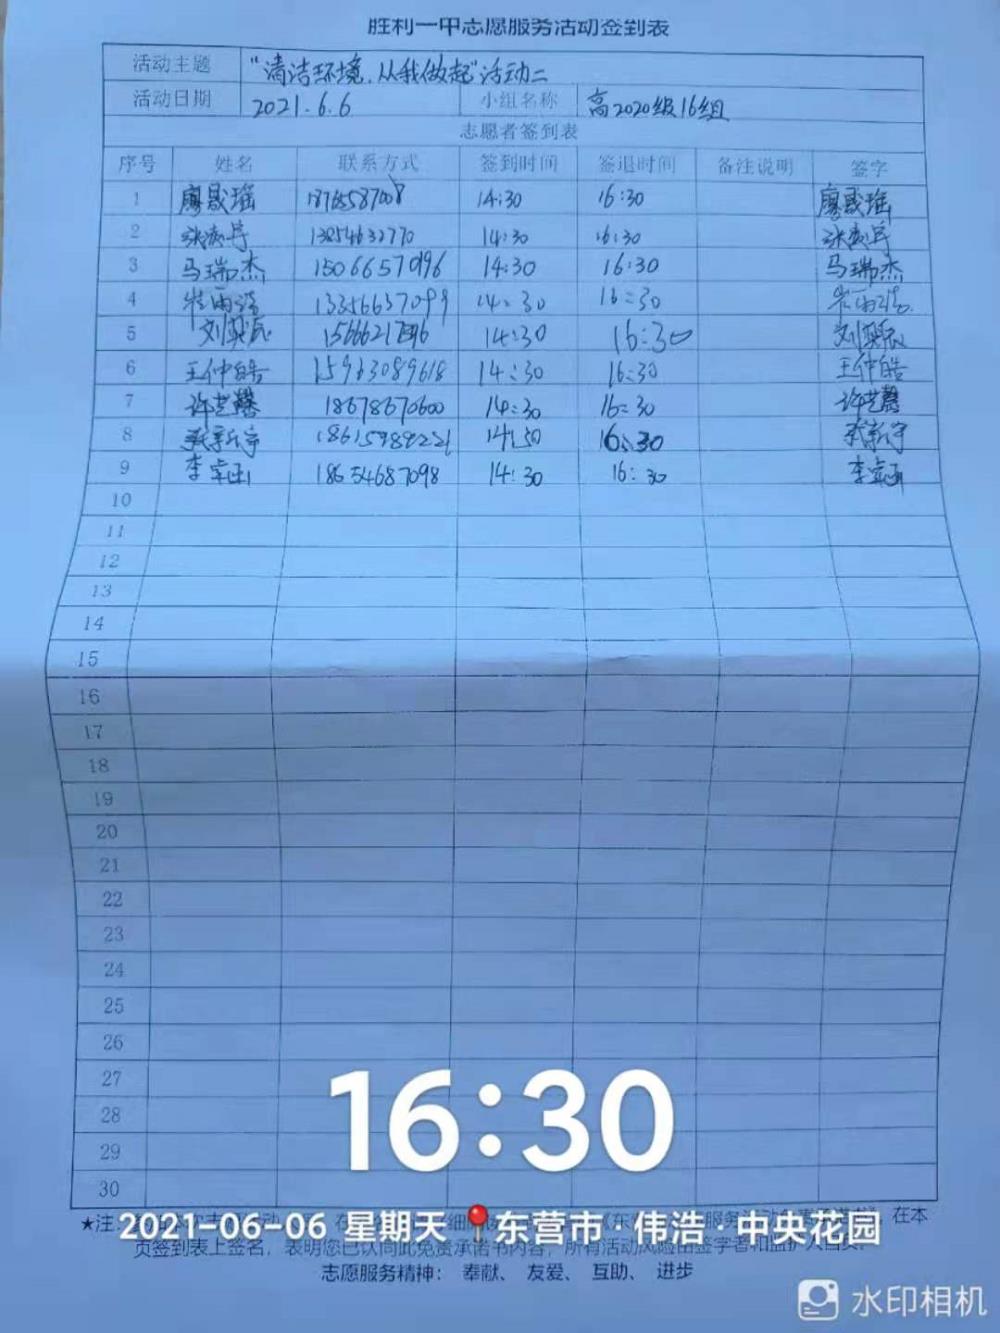 胜利一中志愿服务活动签到表
活动主题 “清洁环境,从我做起”活动二
活动日期 2021.6.6 小组名称 高2020级16组
志愿者签到表
序号 姓名 联系方式 签到时间 签退时间 备注说明 签字
1 廖晟瑶 14:30 16:30 廖晟瑶
2 13854632770 14:30 16:30
3 马瑞杰 15066657096 14:30 16:30 马瑞杰
4 13356637099 14:30 16:30
5 14:30 16:30
6 王仲皓 15963089618 14:30 16:30 王仲皓
7 许艺馨 18678670600 14:30 16:30 许艺馨
8 18615989221 16:30
9 18654687098 14:30 16:30
10
11
12
13
14
15
16
17
18
19
20
21
22
23
24
25
26
27
28
29
30
16:30
★注 在本
2021-06-06 星期天 东营市 伟浩·中央花园
页签到表上签名,表明您已认同此免责承诺书内容,所有活动风险由签字者和监护人自负.
志愿服务精神: 奉献、 友爱、 互助、 进步
水印相机